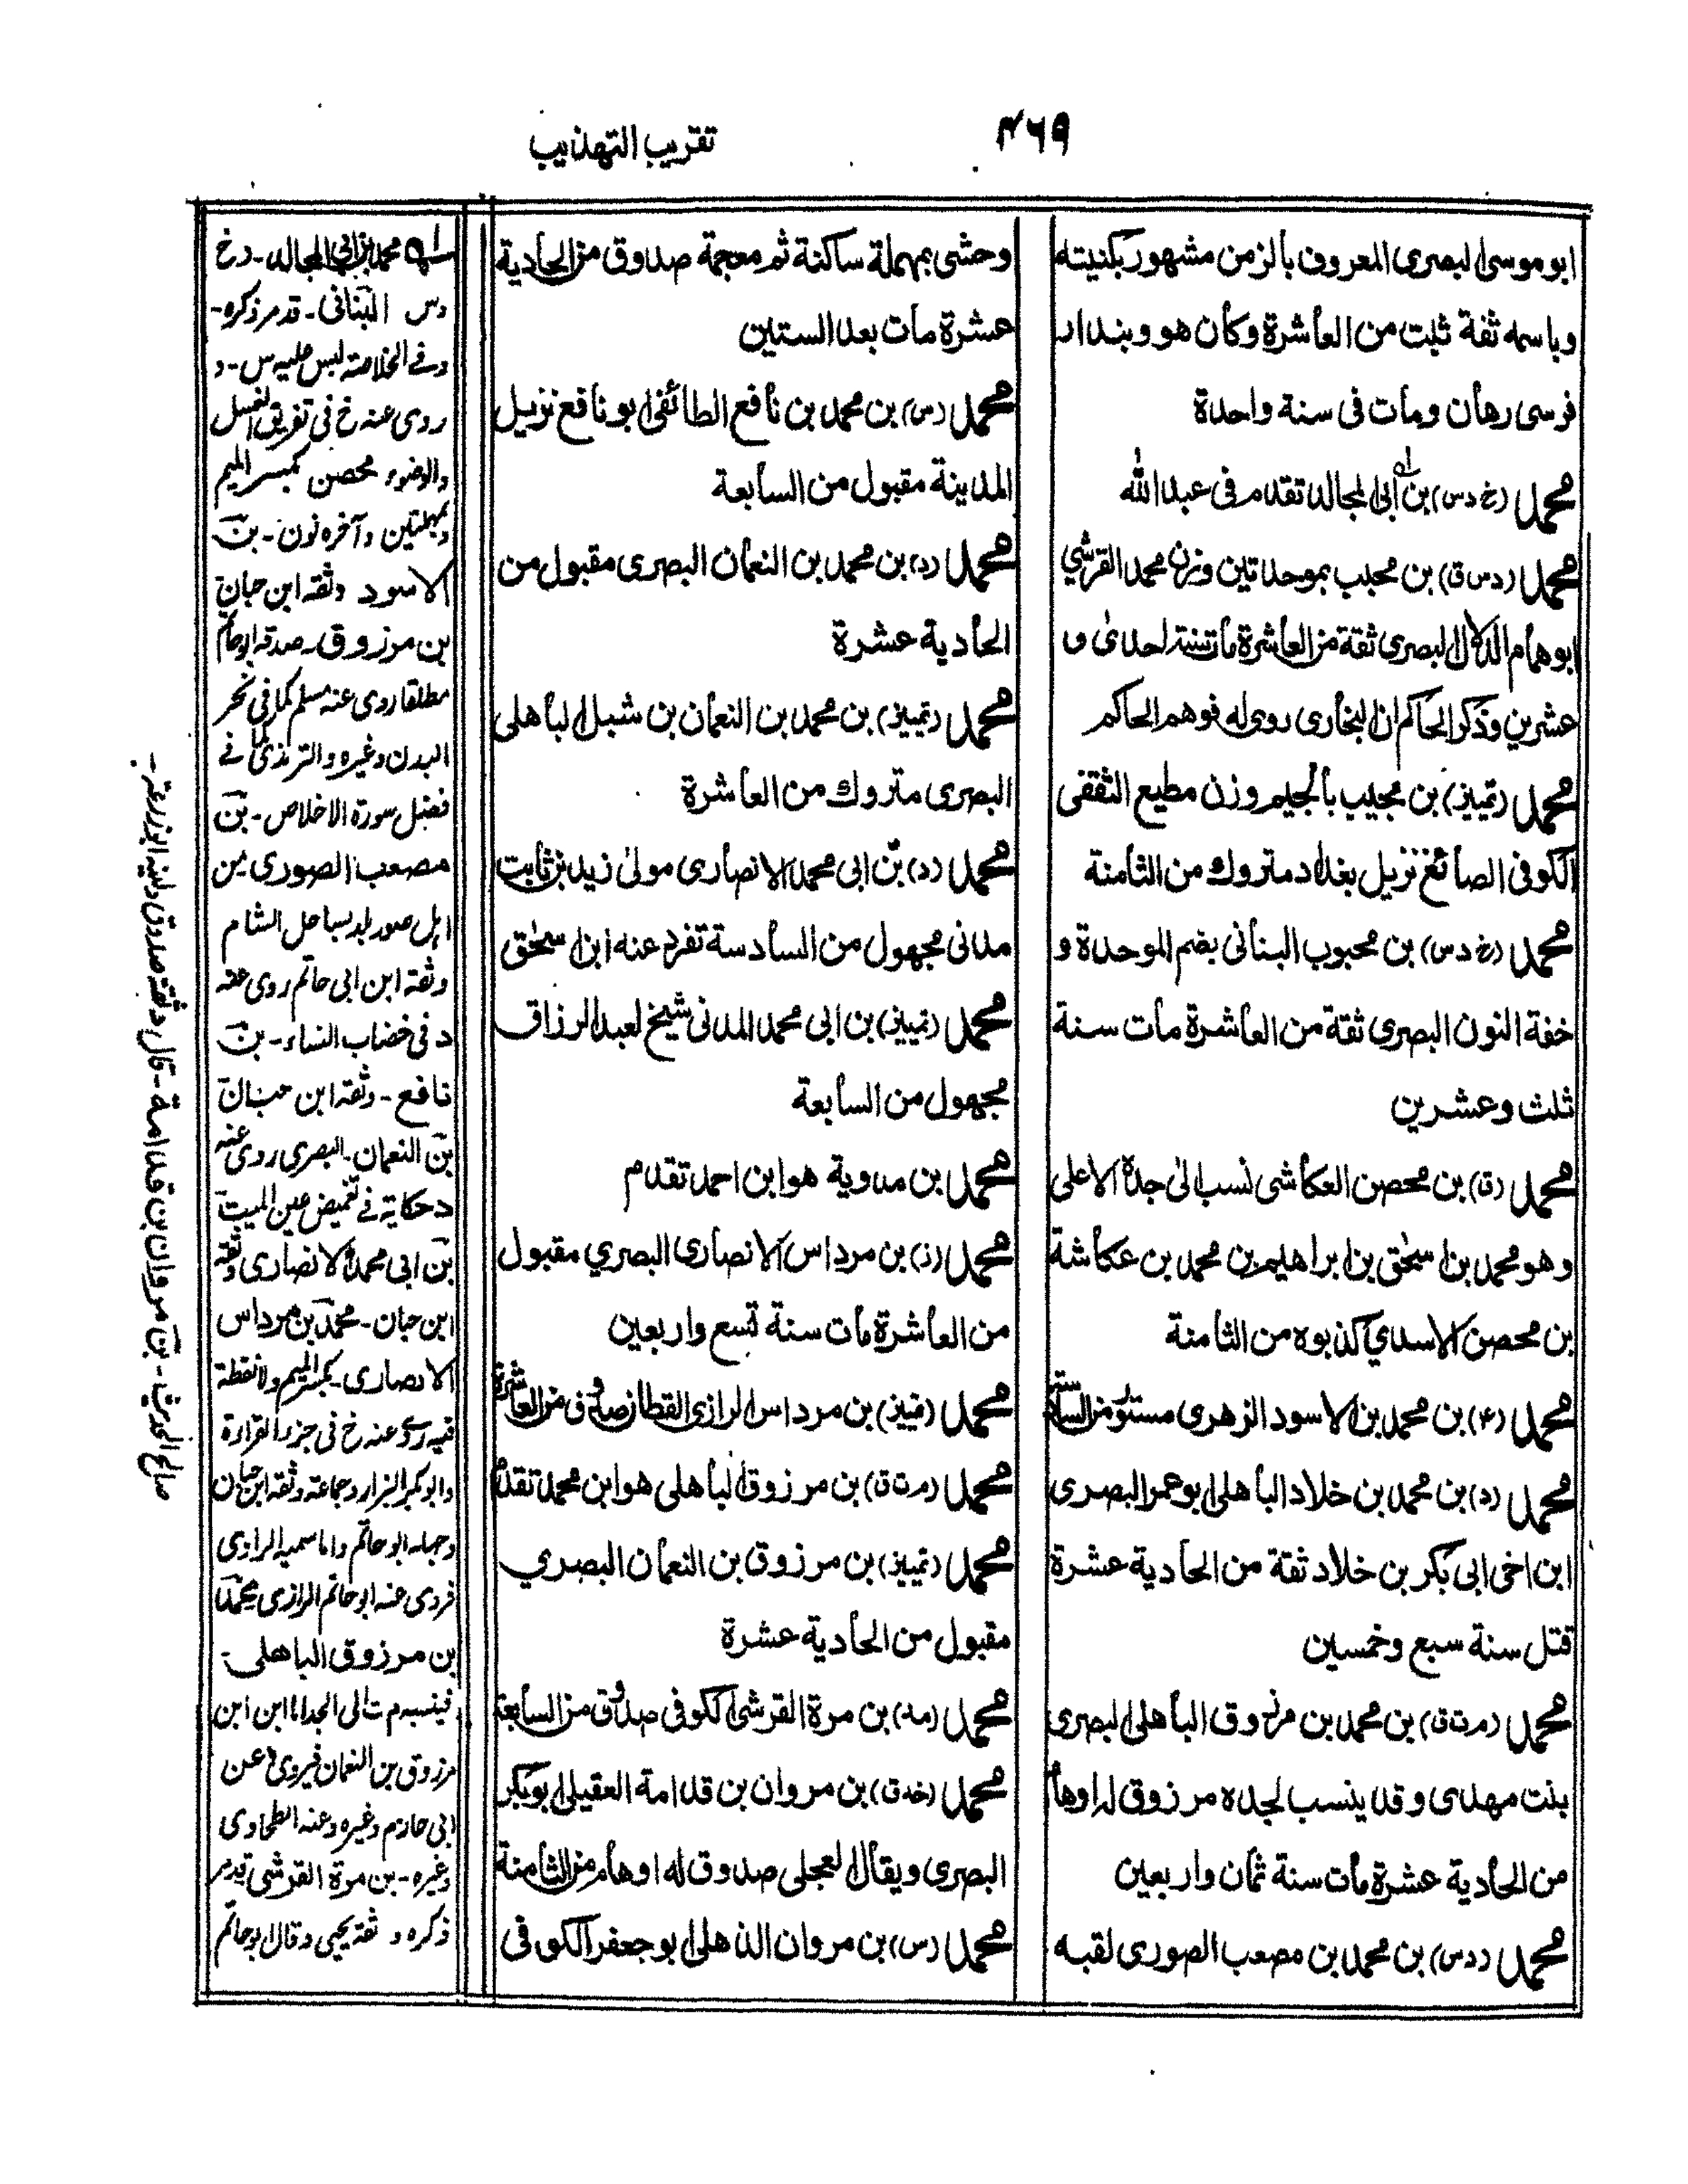 ۴۶۹
تقريب التهذيب
ابو موسى البصرى المعروف بالزمن مشهور بكنيته
وباسمه ثقة ثبت من العاشرة وكان هو وبندار
فرسى رهان ومات فى سنة واحدة
محمد (خ د س) بن ابى المجالد تقدم فى عبد الله
محمد (د س ق) بن محبب بموحدتين وزن محمد القرشي
ابو همام الدلال البصرى ثقة من العاشرة مات سنة احدى و
عشرين وذكر الحاكم ان البخارى روى له فوهم الحاكم
محمد (تمييز) بن مجيب بالجيم وزن مطيع الثقفى
الكوفى الصائغ نزيل بغداد متروك من الثامنة
محمد (خ د س) بن محبوب البنانى بضم الموحدة و
خفة النون البصرى ثقة من العاشرة مات سنة
ثلث وعشرين
محمد (ق) بن محصن العكاشى نسب الى جده الاعلى
وهو محمد بن اسحٰق بن ابراهيم بن محمد بن عكاشة
بن محصن الاسدي كذبوه من الثامنة
محمد (۴) بن محمد بن الاسود الزهرى مستور من السادسة
محمد (د) بن محمد بن خلاد الباهلى ابو عمر البصرى
ابن اخى ابى بكر بن خلاد ثقة من الحادية عشرة
قتل سنة سبع وخمسين
محمد (م ت ق) بن محمد بن مرزوق الباهلى البصرى
بنت مهدى وقد ينسب لجده مرزوق له اوهام
من الحادية عشرة مات سنة ثمان واربعين
محمد (د س) بن محمد بن مصعب الصورى لقبه
وحشى بمهملة ساكنة ثم معجمة صدوق من الحادية
عشرة مات بعد الستين
محمد (س) بن محمد بن نافع الطائفى ابو نافع نزيل
المدينة مقبول من السابعة
محمد (د) بن محمد بن النعمان البصرى مقبول من
الحادية عشرة
محمد (تمييز) بن محمد بن النعمان بن شبل الباهلى
البصرى متروك من العاشرة
محمد (د) بن ابى محمد الانصارى مولى زيد بن ثابت
مدنى مجهول من السادسة تفرد عنه ابن اسحٰق
محمد (تمييز) بن ابى محمد المدنى شيخ لعبد الرزاق
مجهول من السابعة
محمد بن مدوية هو ابن احمد تقدم
محمد (ز) بن مرداس الانصارى البصري مقبول
من العاشرة مات سنة تسع واربعين
محمد (تمييز) بن مرداس الرازى القطان صدوق من العاشرة
محمد (م ت ق) بن مرزوق الباهلى هو ابن محمد تقدم
محمد (تمييز) بن مرزوق بن النعمان البصري
مقبول من الحادية عشرة
محمد (مد) بن مرة القرشى الكوفى صدوق من السابعة
محمد (خد ق) بن مروان بن قدامة العقيلى ابو بكر
البصرى ويقال العجلى صدوق له اوهام من الثامنة
محمد (س) بن مروان الذهلى ابو جعفر الكوفى
له محمد بن ابى المجالد - د خ
دس البنانى - قد مر ذكره -
وفى الخلاصة ليس عليه س - و
روى عنه خ فى تفريق الغسل
والوضوء محصن بكسر الميم
وبمهملتين وآخره نون - بن
الاسود وثقه ابن حبان
بن مرزوق - صدقه ابو حاتم
مطلقا روى عنه مسلم كما فى نحر
البدن وغيره والترمذى كما فى
فضل سورة الاخلاص - بن
مصعب الصورى من
اهل صور بلد بساحل الشام
وثقه ابن ابى حاتم روى عنه
د فى خضاب النساء - بن
نافع - وثقه ابن حبان
بن النعمان - البصرى روى عنه
د حكاية فى تغميض عين الميت
بن ابى محمد الانصارى وثقه
ابن حبان - محمد بن مرداس
الانصارى - بكسر الميم ولا نقطة
فيه روى عنه خ فى جزء القراءة
وابو بكر البزار وجماعة وثقه ابن حبان
وجهله ابو حاتم واما سميه الرازى
فروى عنه ابو حاتم الرازى محمد
بن مرزوق الباهلى -
فينسبه م ت الى الجد اما ابن ابن
مرزوق بن النعمان فيروى عن
ابى حازم وغيره وعنه الطحاوى
وغيره - بن مرة القرشى قد مر
ذكره و ثقه يحيى وقال ابو حاتم
صالح الحديث - بن مروان بن قدامة - قال د ثقة صدوق ولينه ابو زرعة -